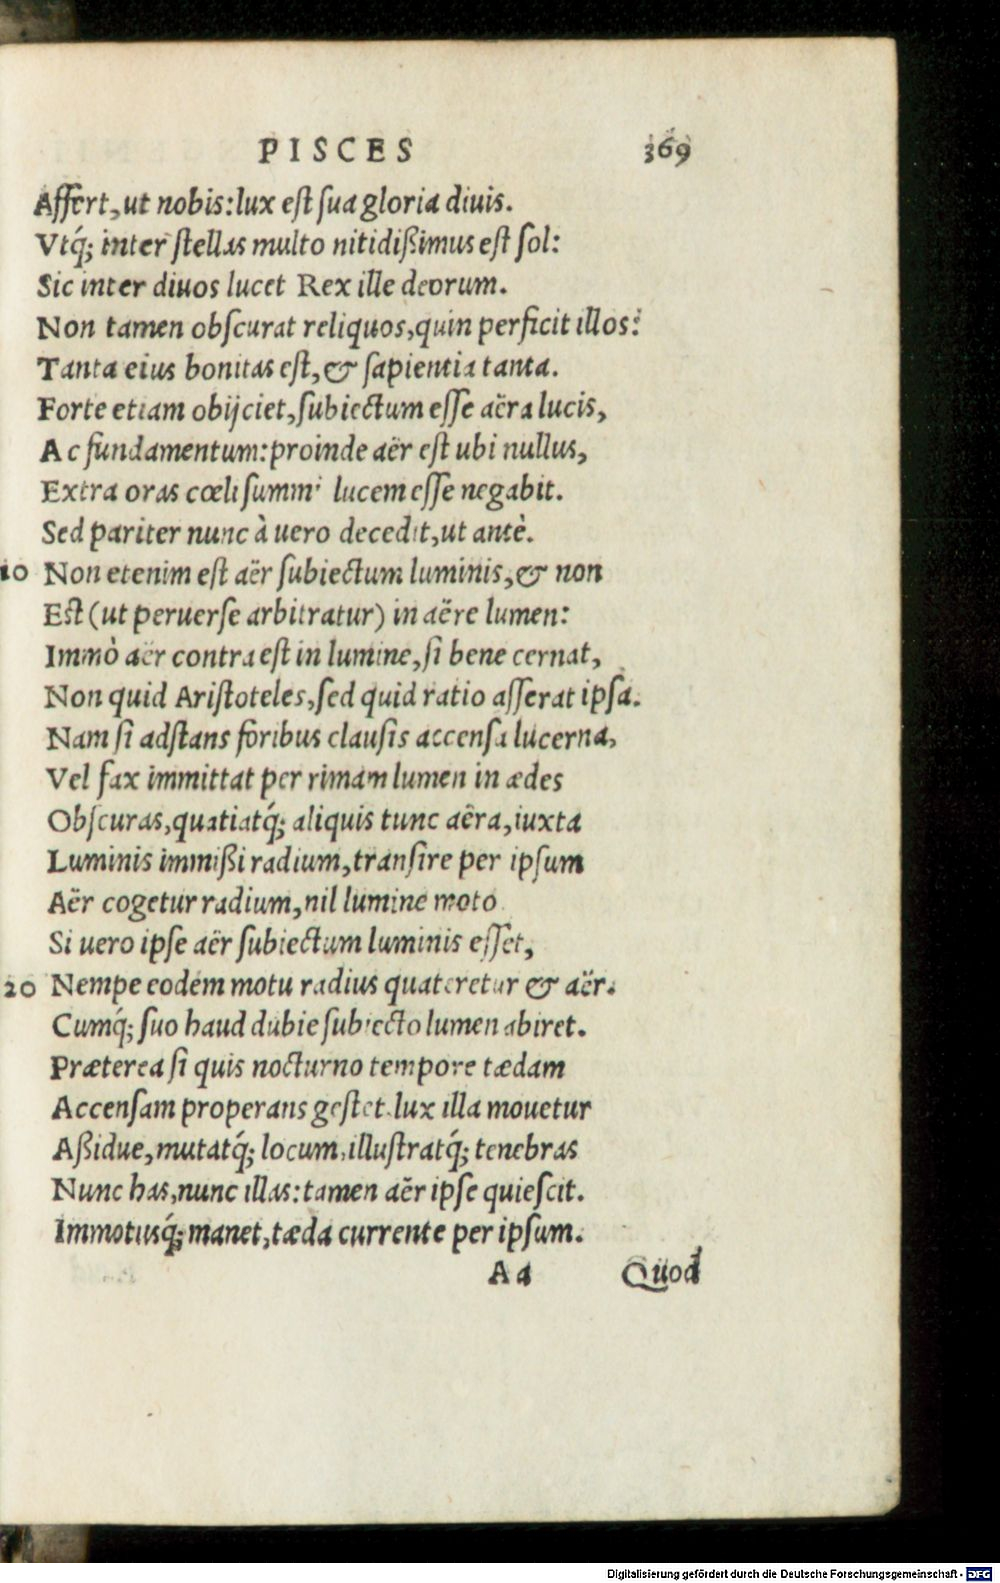 PISCES 369
Affert, ut nobis: lux est sua gloria diuis.
Vtq́; inter stellas multo nitidißimus est sol:
Sic inter diuos lucet Rex ille deorum.
Non tamen obscurat reliquos, quin perficit illos:
Tanta eius bonitas est, & sapientia tanta.
Forte etiam obijciet, subiectum esse aëra lucis,
Ac fundamentum: proinde aër est ubi nullus,
Extra oras cœli summi lucem esse negabit.
Sed pariter nunc à uero decedit, ut antè.
10 Non etenim est aër subiectum luminis, & non
Est (ut peruerse arbitratur) in aëre lumen:
Immò aër contra est in lumine, si bene cernat,
Non quid Aristoteles, sed quid ratio asserat ipsa.
Nam si adstans foribus clausis accensa lucerna,
Vel fax immittat per rimam lumen in ædes
Obscuras, quatiatq́; aliquis tunc aëra, iuxta
Luminis immißi radium, transire per ipsum
Aër cogetur radium, nil lumine moto.
Si uero ipse aër subiectum luminis esset,
20 Nempe eodem motu radius quateretur & aër.
Cumq́; suo haud dubie subiecto lumen abiret.
Præterea si quis nocturno tempore tædam
Accensam properans gestet. lux illa mouetur
Aßidue, mutatq́; locum, illustratq́; tenebras
Nunc has, nunc illas: tamen aër ipse quiescit.
Immotusq́; manet, tæda currente per ipsum.
Aa Quod
Digitalisierung gefördert durch die Deutsche Forschungsgemeinschaft - DFG